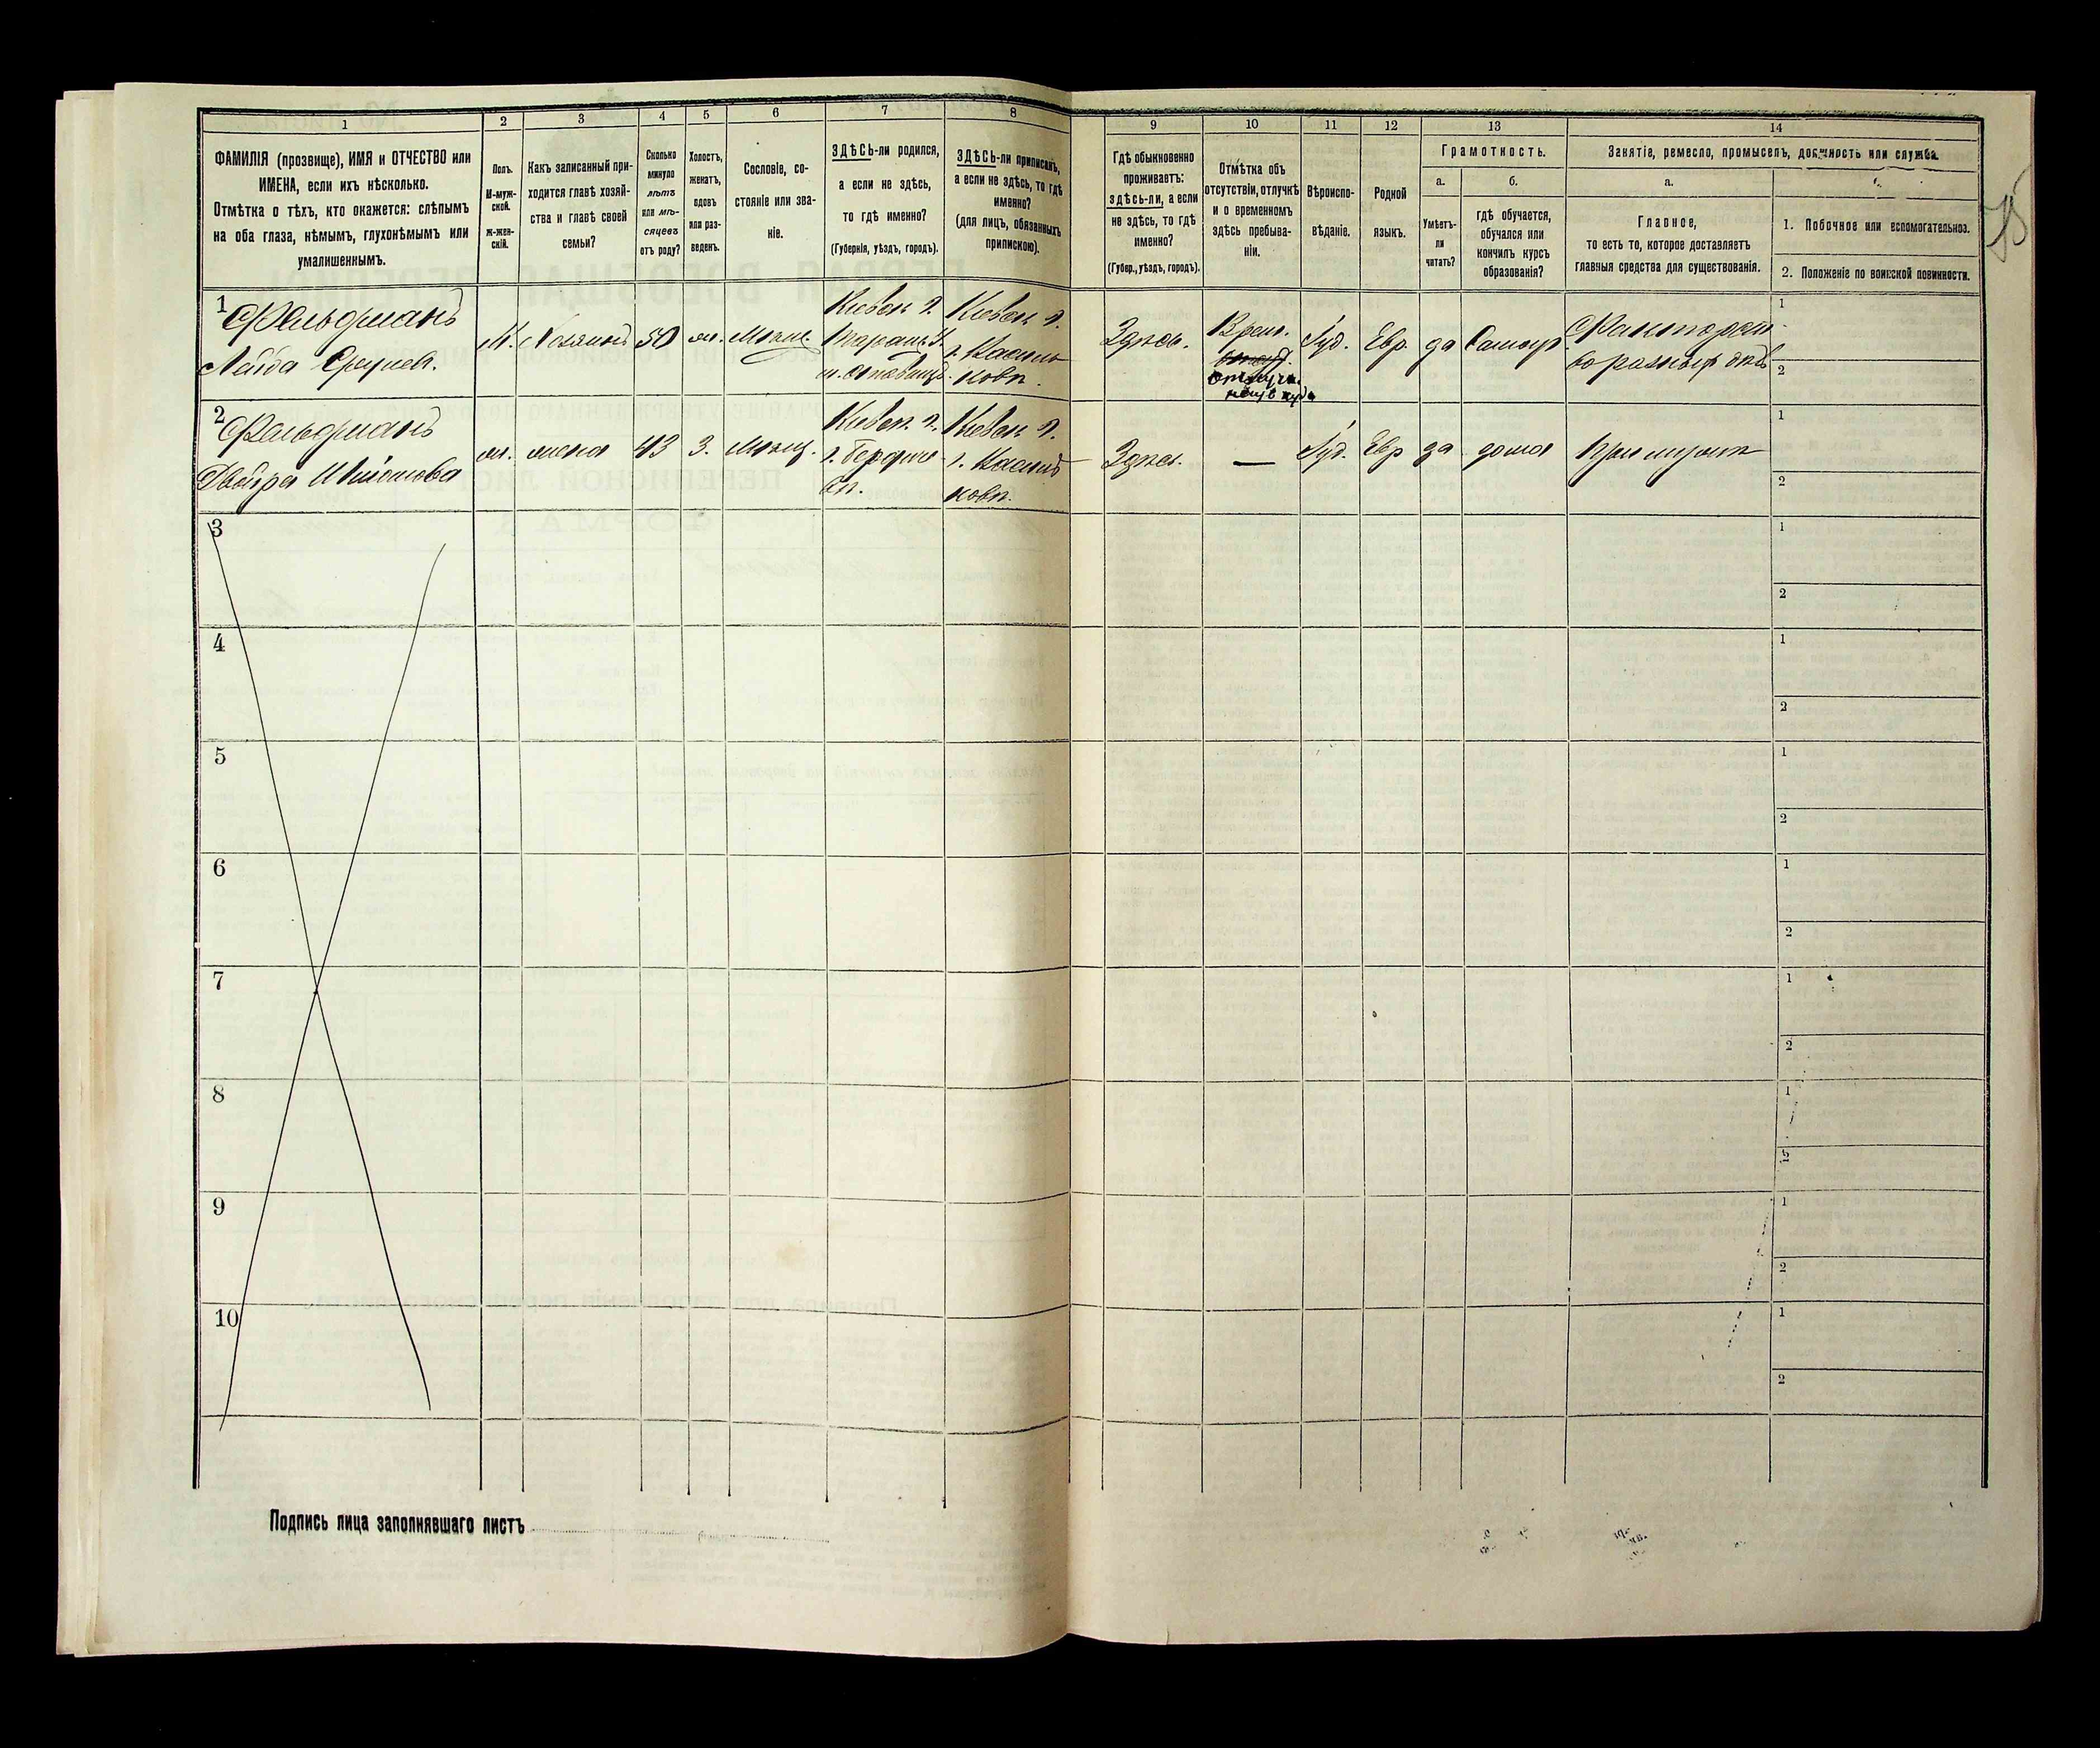 1
2
3
4
5
6
7
8
9
10
11
12
13
14
ФАМИЛІЯ (прозвище), ИМЯ и ОТЧЕСТВО или
ИМЕНА, если ихъ нѣсколько.
Отмѣтка о тѣхъ, кто окажется: слѣпымъ
на оба глаза, нѣмымъ, глухонѣмымъ или
умалишеннымъ.
Полъ.
М-муж-
ской.
ж-жен-
скій.
Какъ записанный при-
ходится главѣ хозяй-
ства и главѣ своей
семьи?
Сколько
минуло
лѣтъ
или мѣ-
сяцевъ
отъ роду?
Холостъ,
женатъ,
вдовъ
или раз-
веденъ.
Сословіе, со-
стояніе или зва-
ніе.
ЗДѢСЬ-ли родился,
а если не здѣсь,
то гдѣ именно?
(Губернія, уѣздъ, городъ).
ЗДѢСЬ-ли приписанъ,
а если не здѣсь, то гдѣ
именно?
(для лицъ, обязанныхъ
припискою).
Гдѣ обыкновенно
проживаетъ:
здѣсь-ли, а если
не здѣсь, то гдѣ
именно?
(Губер., уѣздъ, городъ).
Отмѣтка объ
отсутствіи, отлучкѣ
и о временномъ
здѣсь пребыва-
ніи.
Вѣроиспо-
вѣданіе.
Родной
языкъ.
Грамотность.
а.
Умѣетъ-
ли
читать?
б.
гдѣ обучается,
обучался или
кончилъ курсъ
образованія?
Занятіе, ремесло, промыселъ, должность или служба.
а.
Главное,
то есть то, которое доставляетъ
главныя средства для существованія.
1. Побочное или вспомогательное.
2. Положеніе по воинской повинности.
1
Фельдманъ
Лейба Сруліев.
М.
Хозяинъ
50
ж.
Мѣщ.
Кіевск г.
Таращ. у.
м. Ставищ.
Кіевск г.
г. Василь
ковъ.
Здѣсь.
Врем.
отлуч.
Іуд.
Евр.
да
Самоуч
Факторст.
во разных дѣл
1
2
2
Фельдманъ
Двойра
ж.
жена
43
З.
Мѣщ.
Кіевск. г.
г. Бердич
Кіевск г.
г. Василь
ковъ.
Здѣсь.
—
Іуд.
Евр
да
дома
При мужѣ
1
2
3
1
2
4
1
2
5
1
2
6
1
2
7
1
2
8
1
2
9
1
2
10
1
2
Подпись лица заполнявшаго листъ